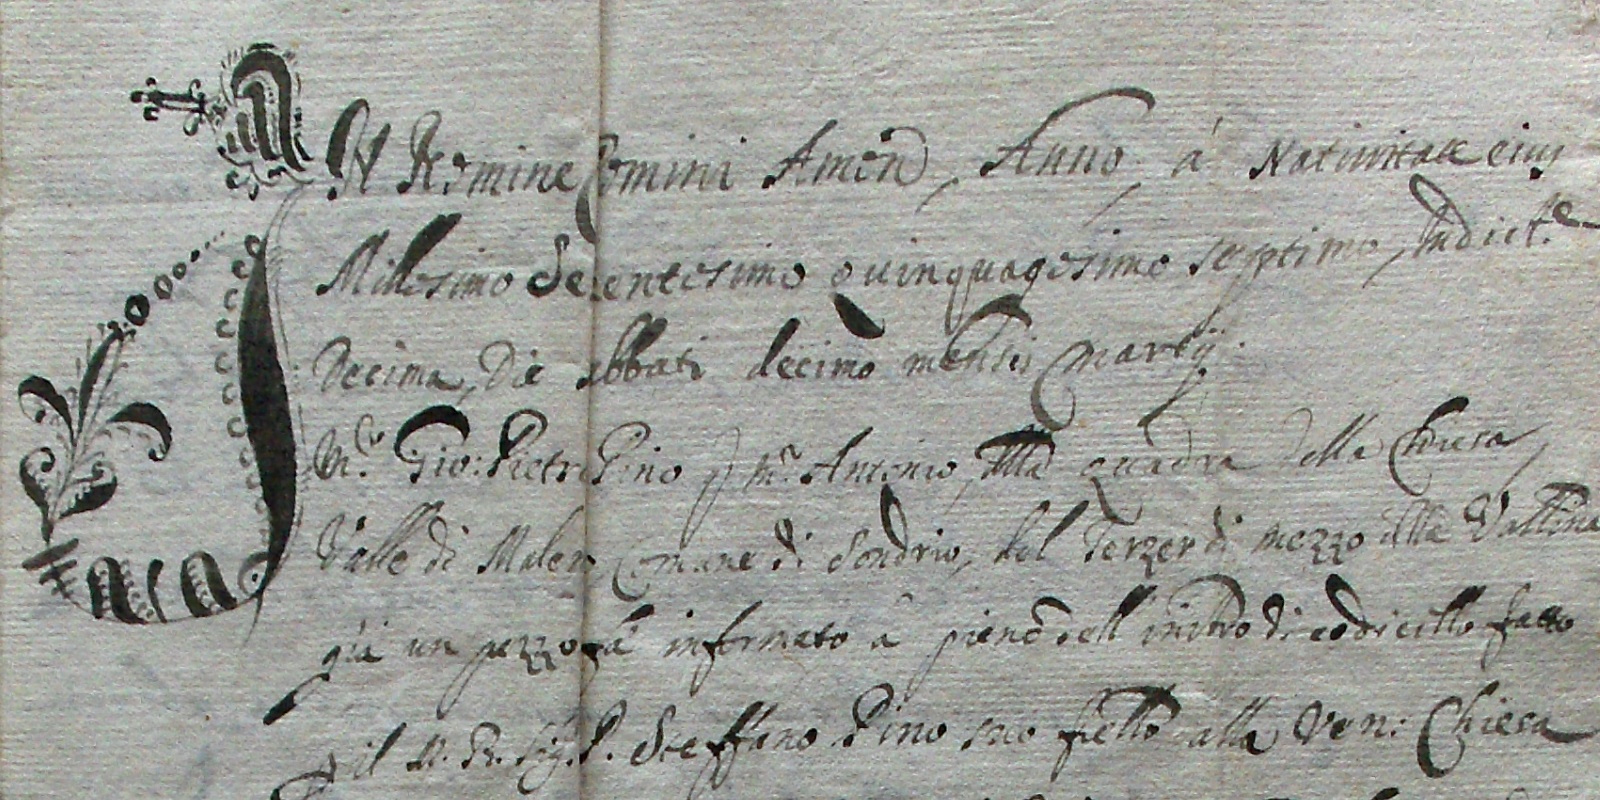 In Nomine Domini Amen, Anno à Nativitate eius
Millesimo Setentesimo quinquagesimo septimo, Indict.e
Decima, Die sabbati decimo mensis Martij.
Gio: Pietro Pino q m.r Antonio, della quadra della Chiesa,
Valle di Malenco, Comune di Sondrio, del Terzer di mezzo della Valtina
già un pezzo fà informato à pieno dell instro di codicillo fatto
p il M. R. Sig. P. Steffano Pino suo fiello alla Ven: Chiesa